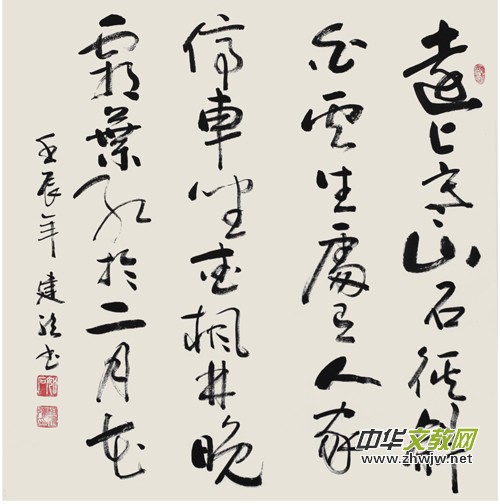 遠上寒山石徑斜
白雲生處有人家
停車坐愛楓林晚
霜葉红於二月花
壬辰年 建书
中华文教网
www.zhwjw.net